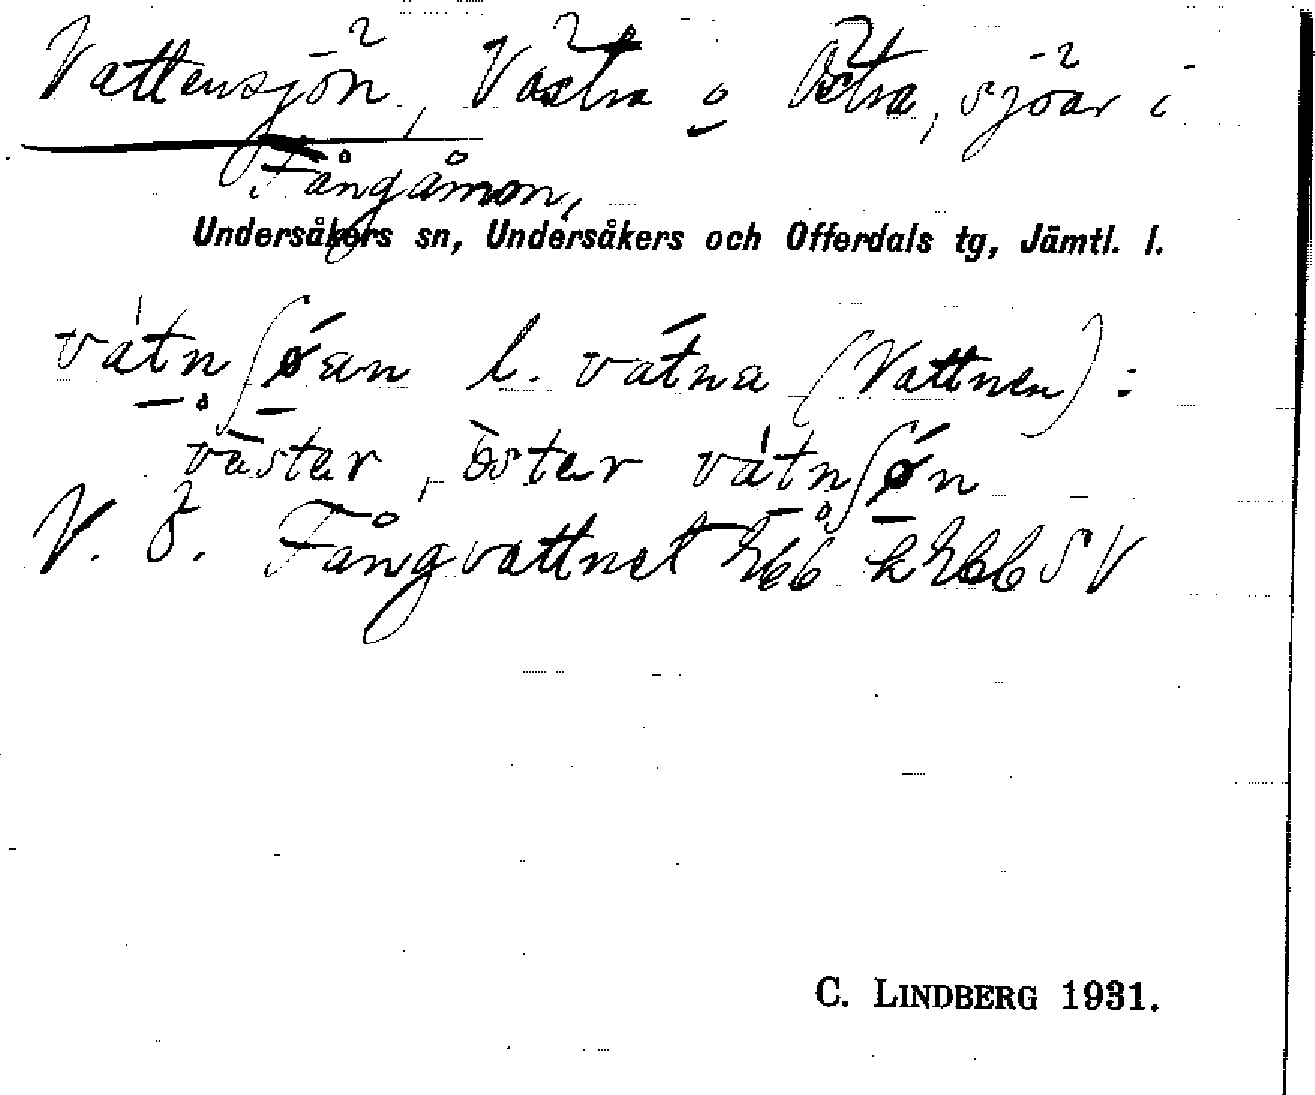 Vattensjön, Västra o Östra, sjöar i
Fångåmon,
Undersåkers sn, Undersåkers och Offerdals tg, Jämtl. l.
vátnʃǿan l. vátna (Vattnen):
vàstar, òstar vátnʃǿn
V. Ö. Fångvattnet
SV
C. LINDBERG 1931.